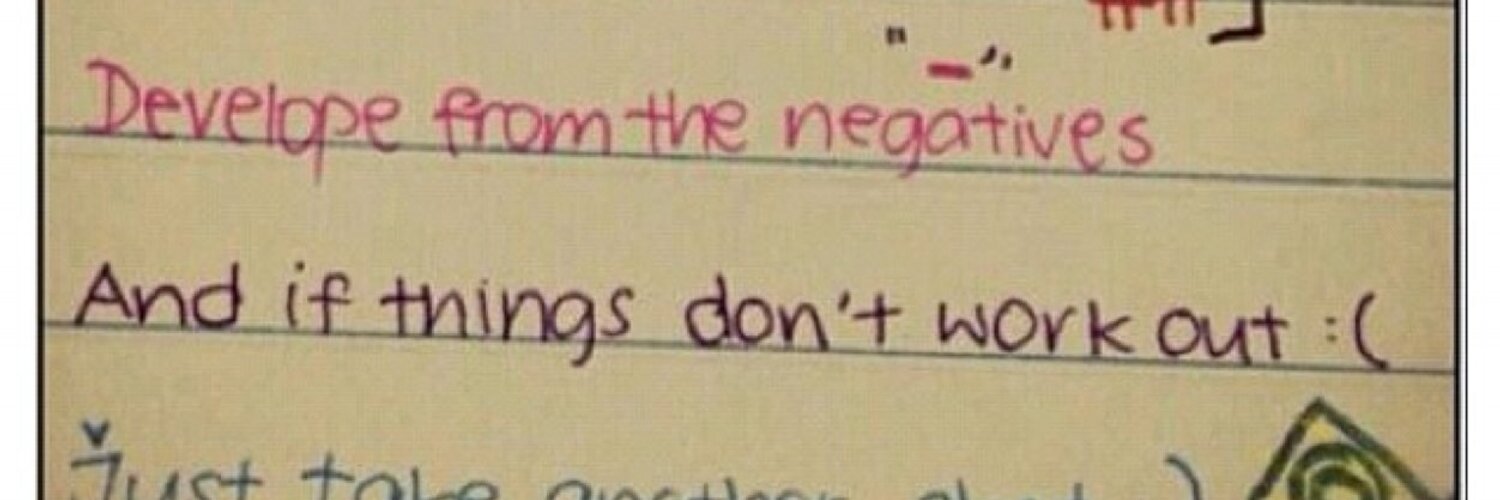 "-"
Develope from the negatives
And if things don't work out :(
Just take another shot :)